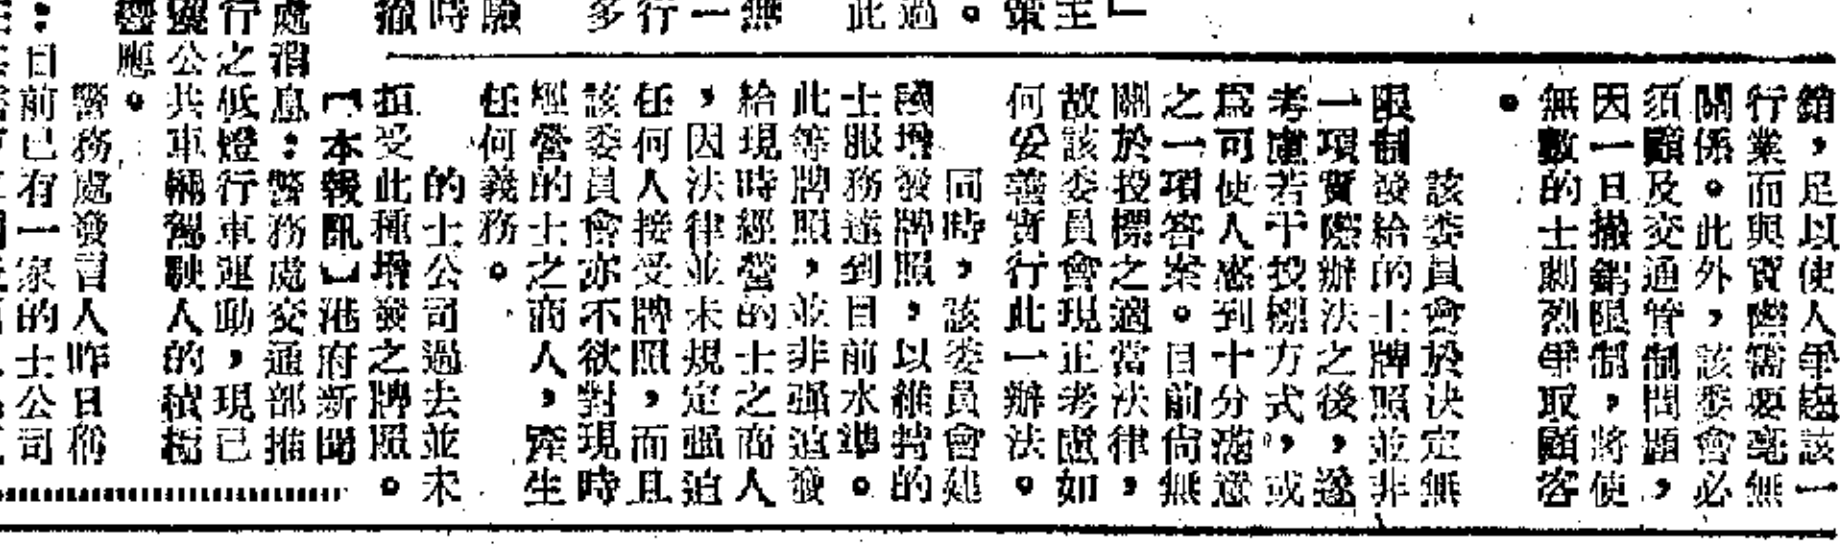 銷，足以使人爭趨該一
行業而與實際需要毫無
關係。此外，該委會必
須顧及交通管制問題，
因一旦撤銷限制，將使
無數的士劇烈爭取顧客
。
該委員會於決定無
限制發給的士牌照並非
一項實際辦法之後，遂
考慮若干投標方式，或
爲可使人感到十分滿意
之一項答案。目前尙無
關於投標之適當法律，
故該委員會現正考慮如
何妥善實行此一辦法。
同時，該委員會建
議增發牌照，以維持的
士服務達到目前水準。
此等牌照，並非強迫發
給現時經營的士之商人
，因法律並未規定強迫
任何人接受牌照，而且
該委員會亦不欲對現時
經營的士之商人，產生
任何義務。
的士公司過去並未
拒受此種增發之牌照。
【本報訊】港府新聞
處消息：警務處交通部推
行之低燈行車運動，現已
獲公共車輛駕駛人的積極
響應。
警務處發言人昨日稱
：目前已有一家的士公司